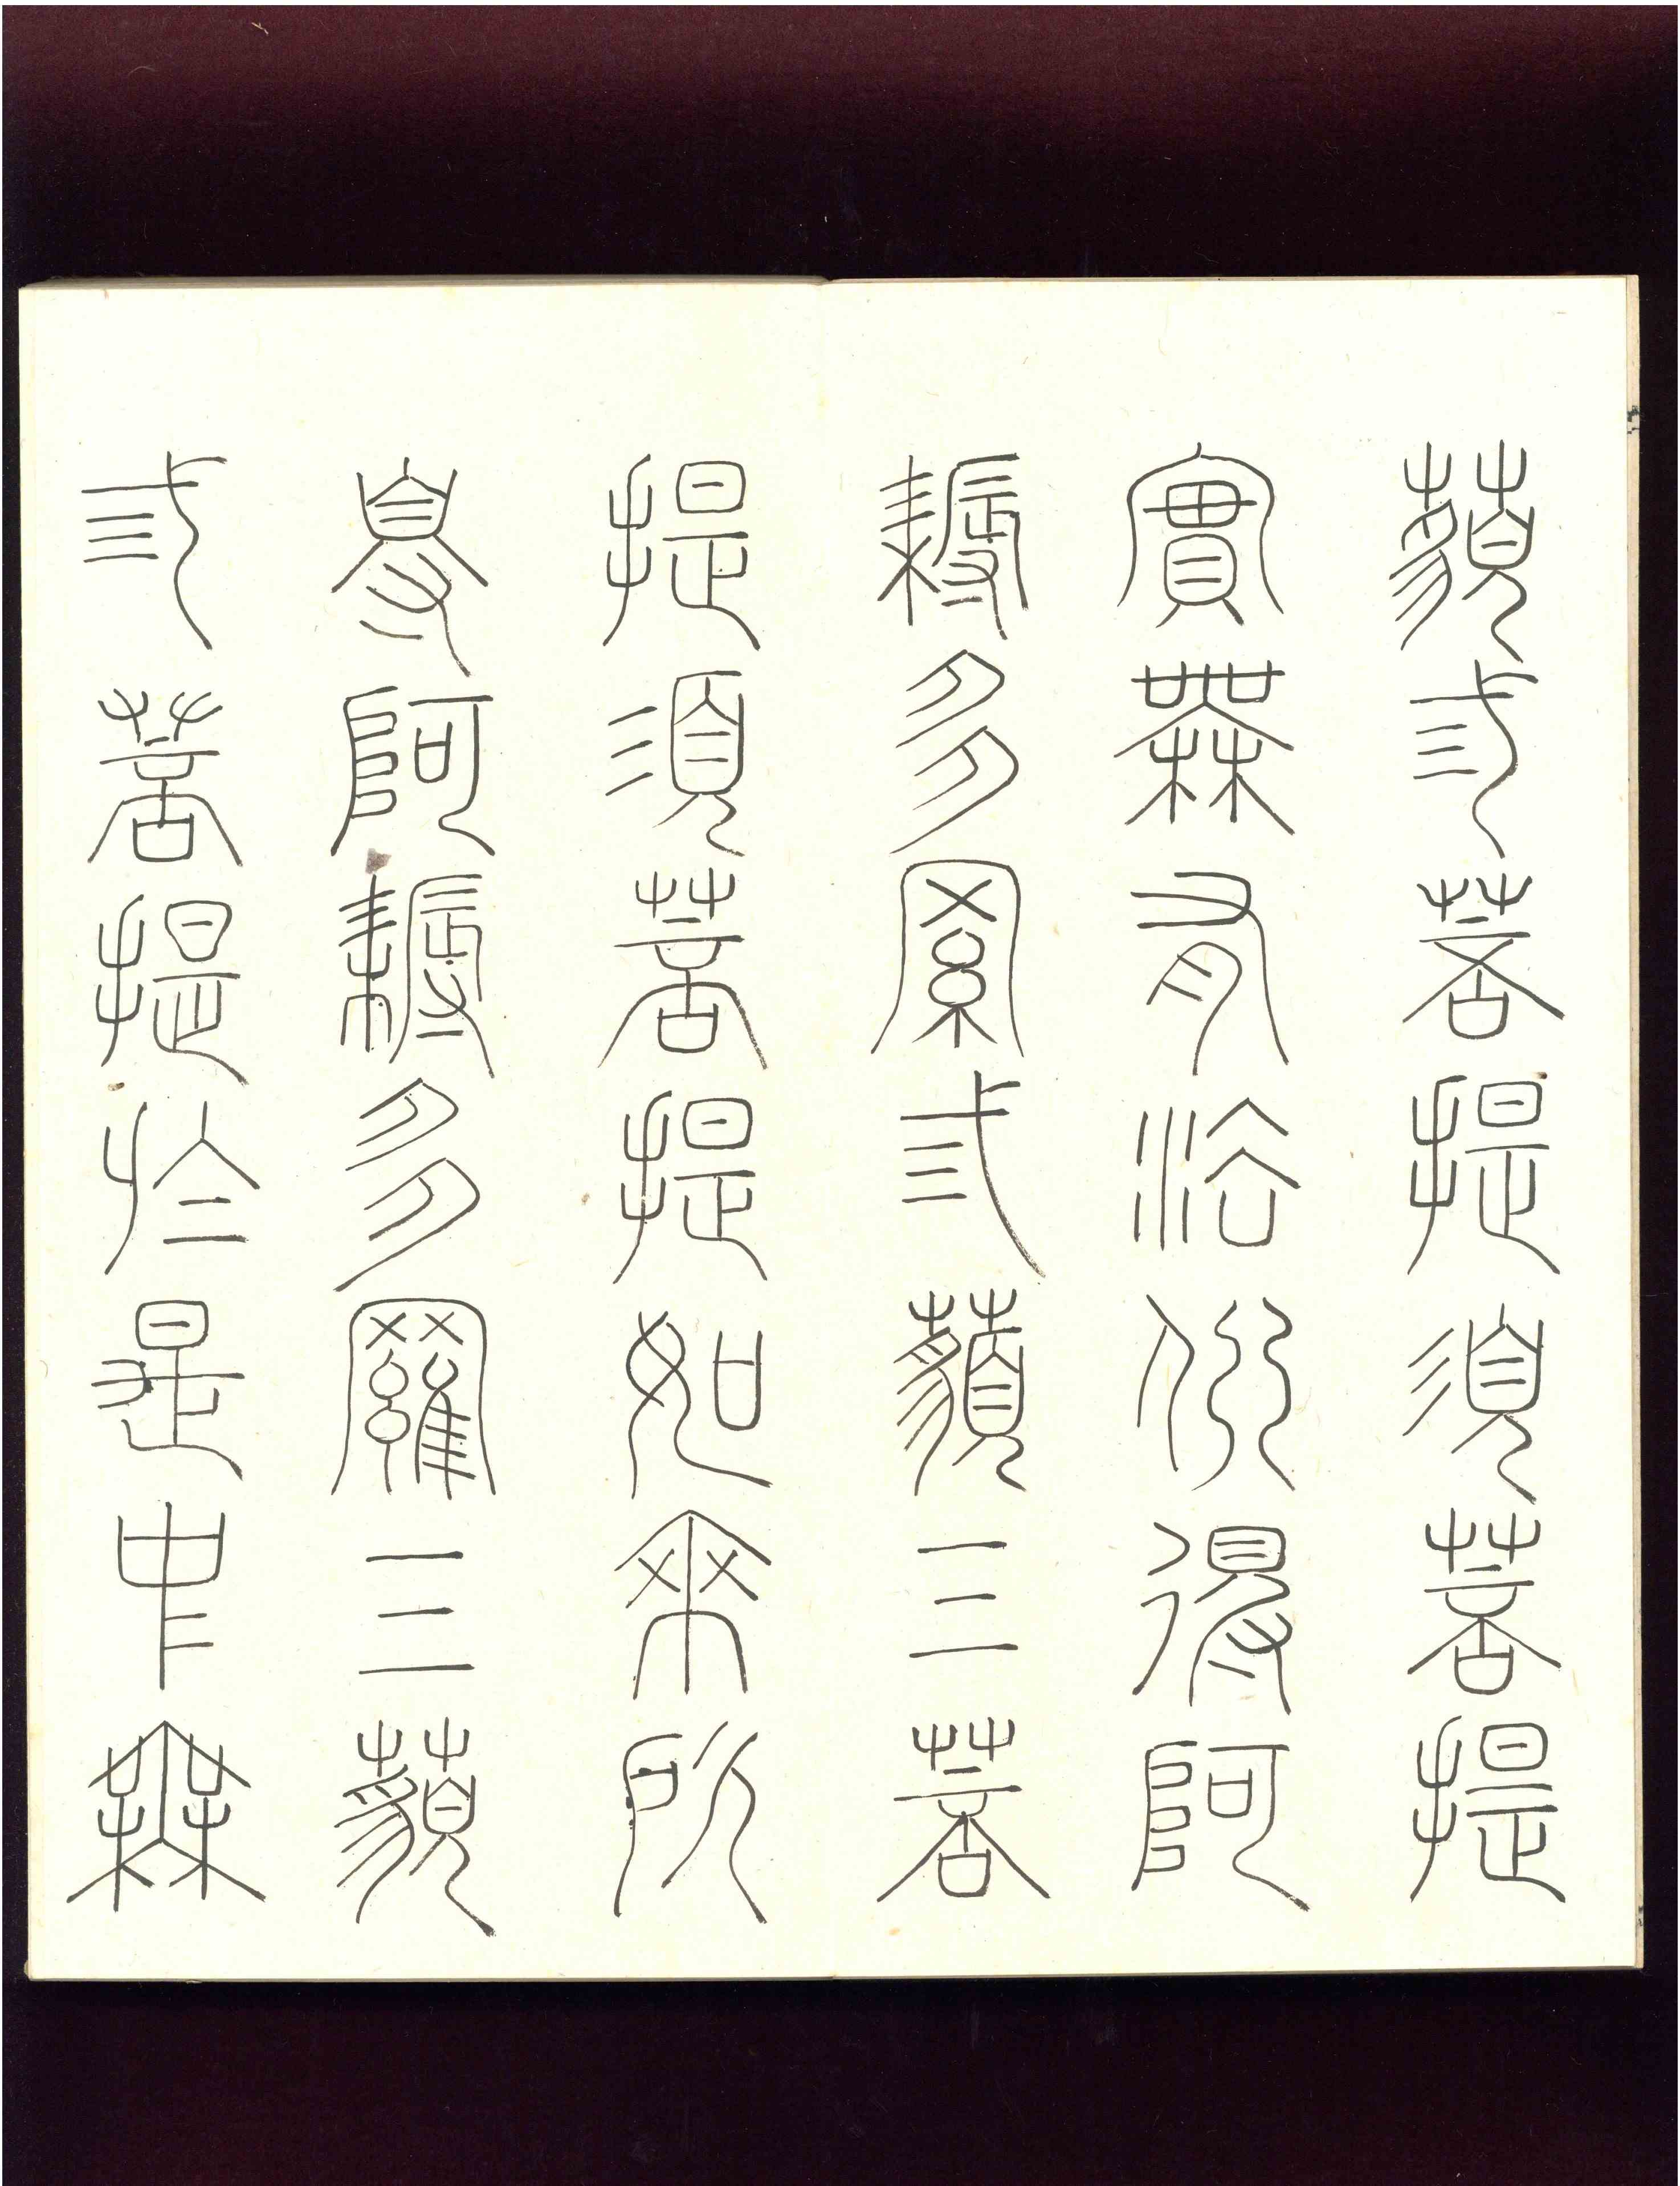 藐弎菩提須菩提
實無有法佛得阿
耨多羅弎藐三菩
提須菩提如來所
得阿耨多羅三藐
弎菩提於是中無